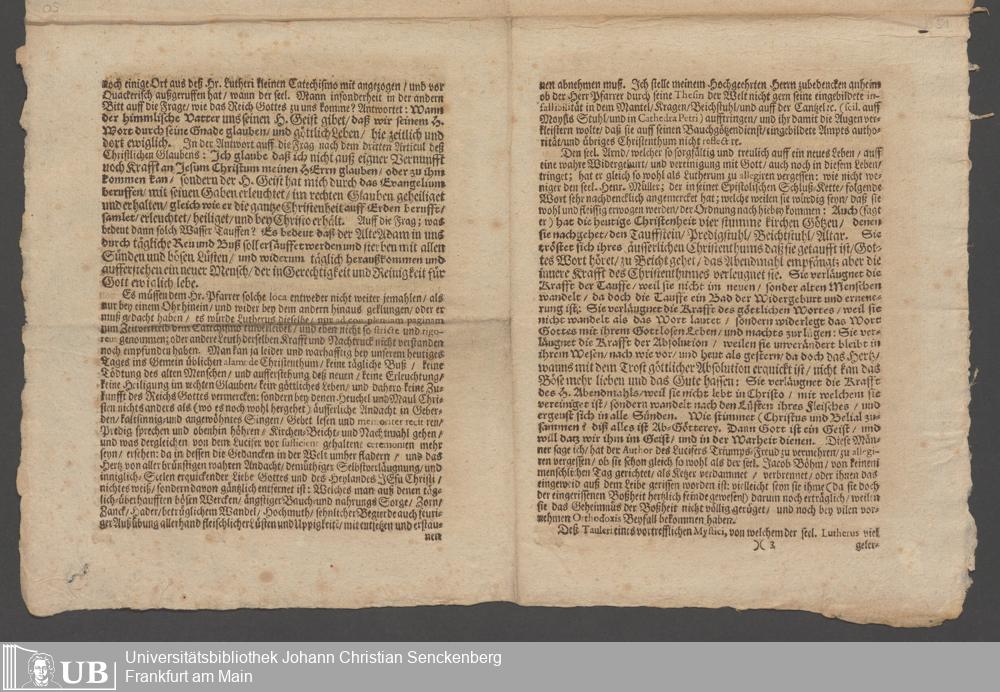 noch einige Ort aus deß Hr. Lutheri kleinen Catechismo mit angezogen / und vor
Quackerisch außgeruffen hat / wann der seel. Mann insonderheit in der andern
Bitt auff die Frage / wie das Reich Gottes zu uns komme? Antwortet: Wann
der himmlische Vatter uns seinen H. Geist gibet / daß wir seinem H.
Wort durch seine Gnade glauben / und göttlich Leben / hie zeitlich und
dort ewiglich. In der Antwort auff die Frag nach dem dritten Articul deß
Christlichen Glaubens: Ich glaube daß ich nicht auß eigner Vernunfft
noch Krafft an Jesum Christum meinen HErrn glauben / oder zu ihm
kommen kan / sondern der H. Geist hat mich durch das Evangelium
beruffen / mit seinen Gaben erleuchtet / im rechten Glauben geheiliget
und erhalten / gleich wie er die gantze Christenheit auff Erden berufft /
samlet / erleuchtet / heiliget / und bey Christo erhält. Auff die Frag; was
bedeut dann solch Wasser Tauffen? Es bedeut daß der Alte Adam in uns
durch tägliche Reu und Buß soll ersäuffet werden und sterben mit allen
Sünden und bösen Lüsten / und widerum täglich herauß kommen und
aufferstehen ein neuer Mensch / der in Gerechtigkeit und Reinigkeit für
Gott ewiglich lebe.
Es müssen dem Hr. Pfarrer solche loca entweder nicht weiter jemahlen / als
nur bey einem Ohr hinein / und wider bey dem andern hinaus geklungen / oder er
muß gedacht haben / es würde Lutherus dieselbe / nur ad complendam paginam
zum Zeitvertreib dem Catechismo einverleibet / und eben nicht so stricte und rigo-
rem genommen; oder andere Leuth derselben Krafft und Nachtruck nicht verstanden
noch empfunden haben. Man kan ja leider und warhafftig bey unserem heutiges
Tages ins Gemein üblichen alamode Christenthum / keine tägliche Buß / keine
Tödtung des alten Menschen / und aufferstehung deß neuen / keine Erleuchtung /
keine Heiligung im rechten Glauben / kein göttliches Leben / und dahero keine Zu-
kunfft des Reichs Gottes vermercken: sondern bey denen Heuchel und Maul Chri-
sten nichts anders als (wo es noch wohl hergehet) äusserliche Andacht in Geber-
den / kaltsinnig und angewöhntes Singen / Gebet lesen und memoriter reciteren /
Predig sprechen und obenhin höhren / Kirchen-Beicht- und Nachtmahl gehen /
und was dergleichen von dem Lucifer vor sufficient gehaltene ceremonien mehr
seyn / ersehen: da in dessen die Gedancken in der Welt umher fladern / und das
Hertz von aller brünstigen wahren Andacht / demüthiger Selbstverläugnung / und
inniglich-Seelen erquickender Liebe Gottes und des Heylandes JEsu Christi /
nichtes weiß / sondern davon gäntzlich entfernet ist: Welches man auß denen täg-
lich-überhaufften bösen Wercken / ängstiger Bauch- und nahrungs Sorge / Zorn /
Zanck / Hader / betrüglichem Wandel / Hochmuth / sehnlicher Begierde auch feuri-
ger Außübung allerhand fleischlicher Lüsten und Uppigkeit / mit entsetzen und erstau-
nen
nen abnehmen muß. Ich stelle meinem Hochgeehrten Herrn zubedencken anheim
ob der Herr Pfarrer durch seine Thesin der Welt nicht gern seine eingebildete in-
fallibilität in dem Mantel / Kragen / Beichtstuhl / und auff der Cantzel ꝛc. (scil. auff
Moysis Stuhl / und in Cathedra Petri) auffdringen / und ihr damit die Augen ver-
kleistern wolte / daß sie auff seinen Bauchgötzendienst / eingebildete Ampts autho-
rität / und übriges Christenthum nicht reflectire.
Den seel. Arnd / welcher so sorgfältig und treulich auff ein neues Leben / auff
eine wahre Widergeburt / und vereinigung mit Gott / auch noch in diesem Leben /
tringet; hat er gleich so wohl als Lutherum zu allegiren vergessen: wie nicht we-
niger den seel. Henr. Müller; der in seiner Epistolischen Schluß-Kette / folgende
Wort sehr nachdencklich angemercket hat; welche weilen sie würdig seyn / daß sie
wohl und fleissig erwogen werden / der Ordnung nach hiebey kommen: Auch (sagt
er) hat die heutige Christenheit vier stumme kirchen Götzen / denen
sie nachgehet / den Tauffstein / Predigstuhl / Beichtstuhl / Altar. Sie
tröstet sich ihres äusserlichen Christenthums daß sie getaufft ist / Got-
tes Wort höret / zu Beicht gehet / das Abendmahl empfängt; aber die
innere Krafft des Christenthumes verleugnet sie. Sie verläugnet die
Krafft der Tauffe / weil sie nicht im neuen / sonder alten Menschen
wandelt / da doch die Tauffe ein Bad der Widergeburt und erneue-
rung ist: Sie verläugnet die Krafft des göttlichen Wortes / weil sie
nicht wandelt als das Wort lautet / sondern widerlegt das Wort
Gottes mit ihrem Gottlosen Leben / und machts zur lügen: Sie ver-
läugnet die Krafft der Absolution / weilen sie unverändert bleibt in
ihrem Wesen / nach wie vor / und heut als gestern / da doch das Hertz /
wanns mit dem Trost göttlicher Absolution erquickt ist / nicht kan das
Böse mehr lieben und das Gute hassen: Sie verläugnet die Krafft
des H. Abendmahls / weil sie nicht lebt in Christo / mit welchem sie
vereiniget ist / sondern wandelt nach den Lüsten ihres Fleisches / und
ergeust sich in alle Sünden. Wie stimmet Christus und Belial zu-
sammen? diß alles ist Ab-Götterey. Dann Gott ist ein Geist / und
will daß wir ihm im Geist / und in der Warheit dienen. Diese Män-
ner sage ich / hat der Author des Lucifers Triumps / Freud zu vermehren / zu allegi-
ren vergessen / ob sie schon gleich so wohl als der seel. Jacob Böhm / von keinem
menschlichen Tag gerichtet / als Ketzer verdammet / verbrennet / oder ihren das
eingeweid auß dem Leibe gerissen worden ist: vielleicht seyn sie ihme (da sie doch
der eingerissenen Boßheit hertzlich feinde gewesen) darum noch erträglich / weilen
sie das Geheimnus der Boßheit nicht völlig gerüget / und noch bey vilen vor-
nehmen Orthodoxis Beyfall bekommen haben.
Deß Tauleri eines vortrefflichen Mystici, von welchem der seel. Lutherus viel
)( 3 geler-
UB
Universitätsbibliothek Johann Christian Senckenberg
Frankfurt am Main